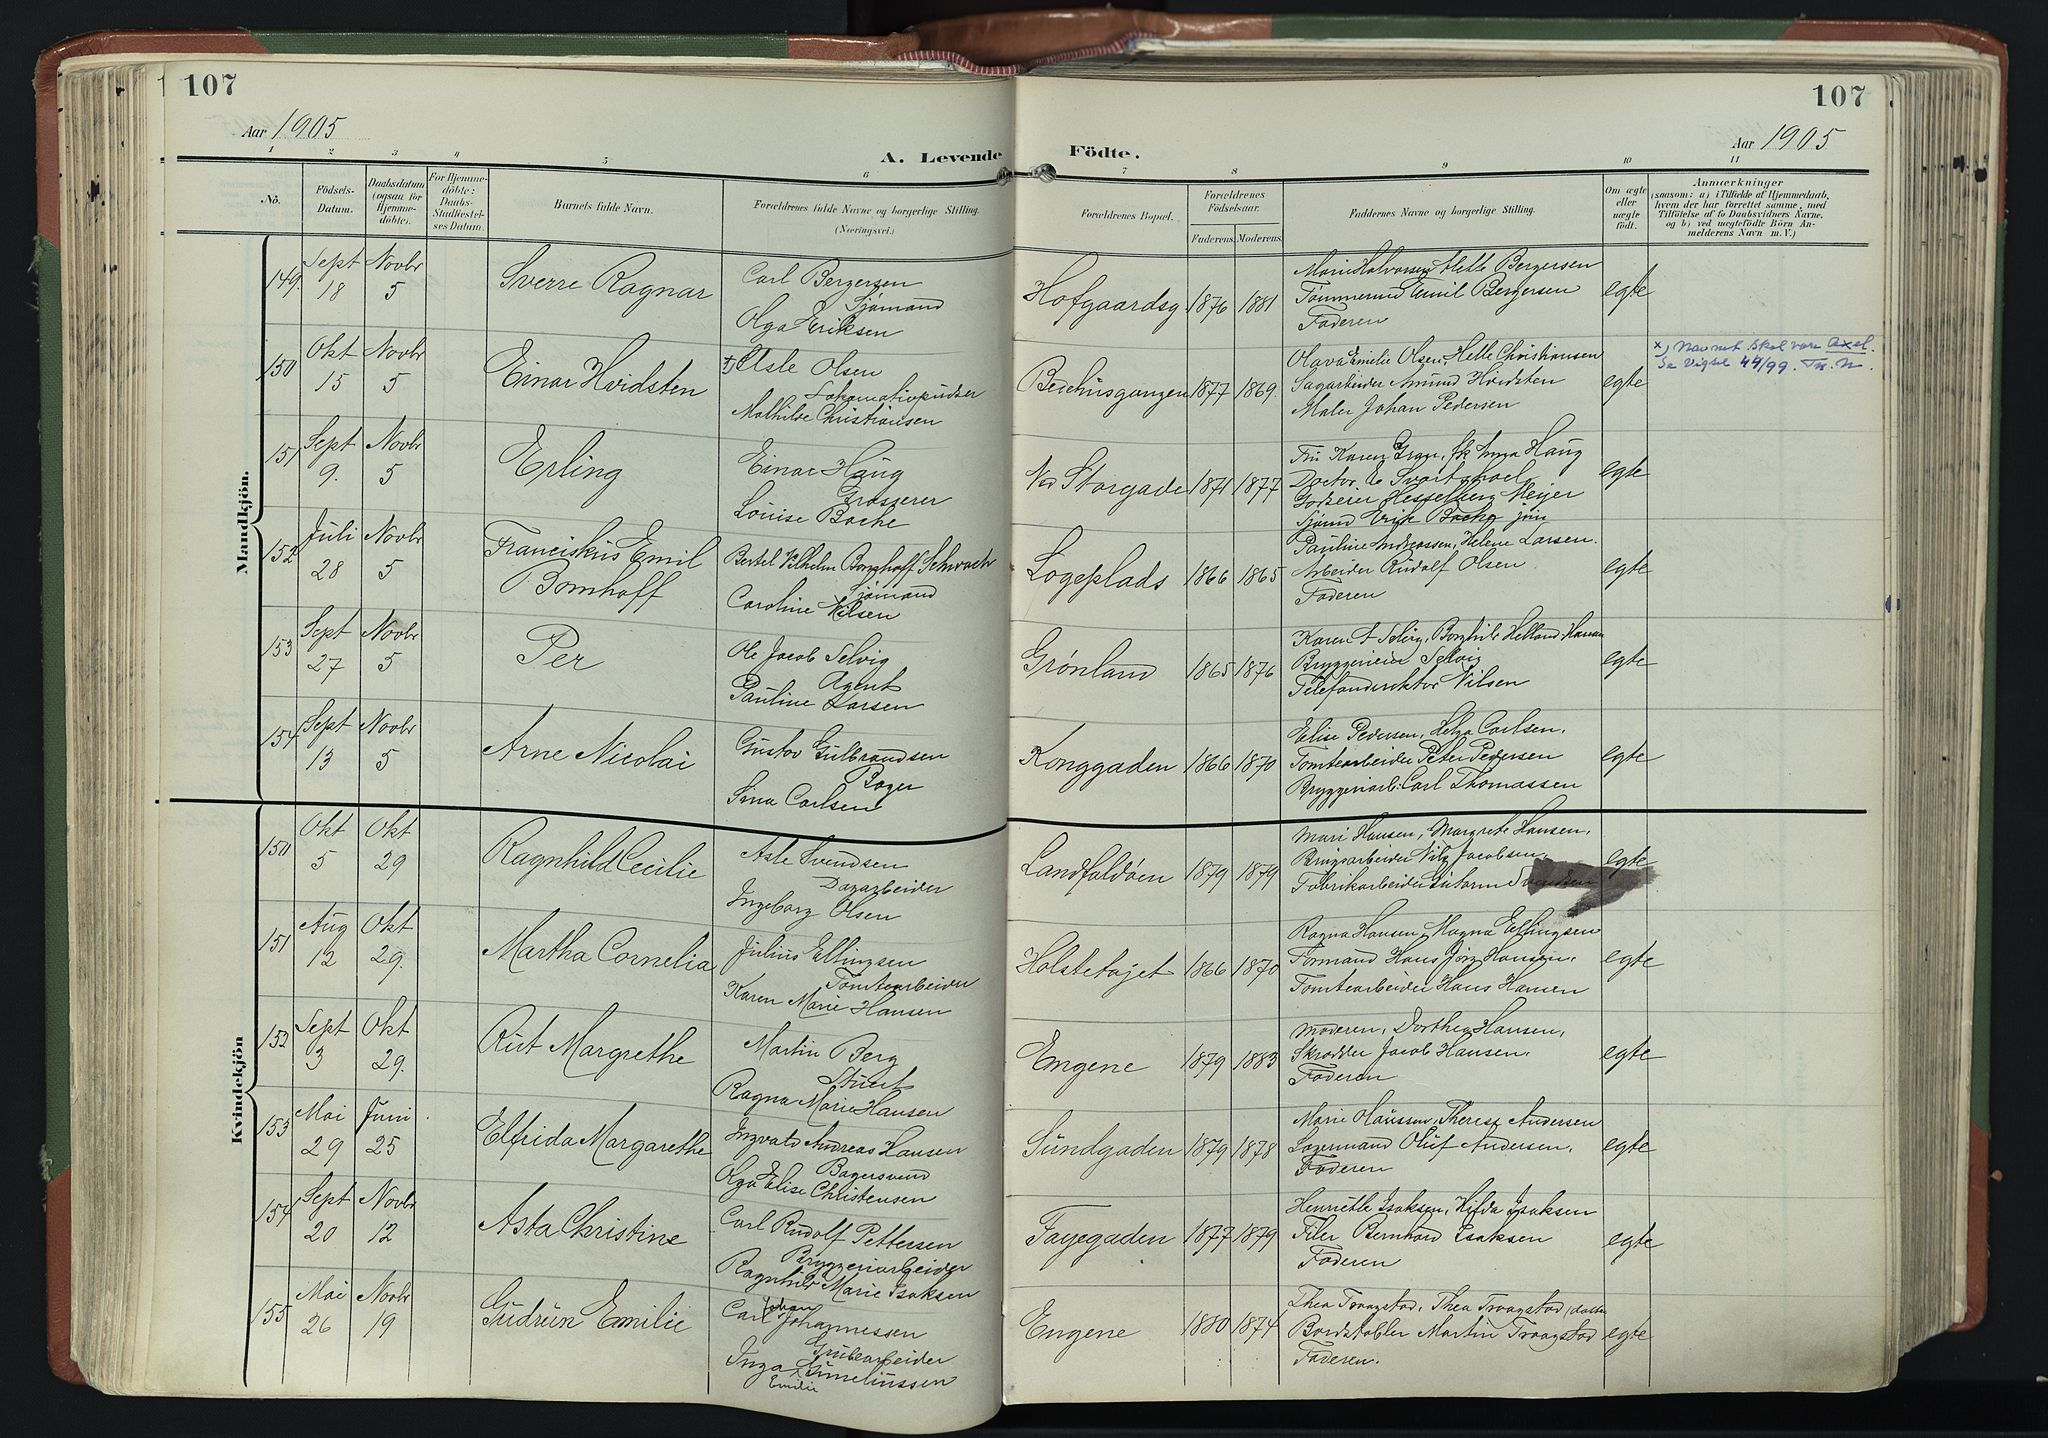 107
107
Aar 1905
Aar 1905
A. Levende Födte.
1 2 3 4 5 6 7 8 9 10 11
No.
Födsels-
Datum.
Daabsdatum
(ogsaa for
Hjemme-
döbte).
For Hjemme-
döbte:
Daabs-
Stadfæstel-
ses Datum.
Barnets fulde Navn.
Forældrenes fulde Navne og borgerlige Stilling.
(Næringsvei.)
Forældrenes Bopæl.
Forældrenes
Födselsaar.
Faderens. Moderens.
Faddernes Navne og borgerlige Stilling.
Om ægte
eller
uægte
födt.
Anmærkninger
(saasom: a) i Tilfælde af Hjemmedaab,
hvem der har forrettet samme, med
Tilföielse af to Daabsvidners Navne,
og b) ved uægtefödte Börn An-
melderens Navn m. V.)
Mandkjön.
149. Sept 18 Novbr 5
Sverre Ragnar
Carl Bergersen
Sjømand
Olga Eriksen
Hofgaardsg. 1876 1881
Marie Halvorsen, Hette Bergersen
Tømmermd Emil Bergersen
Faderen
egte
150 Okt 15 Novbr 5
Einar Hvidsten
x) Asle Olsen
Lokomotivpudser
Mathilde Christiansen
Bedehusgangen 1877 1869.
Olava Emelie Olsen, Helle Christiansen
Sagarbeider Amund Hvidsten
Maler Johan Pedersen
egte
x) Navnet skal være Axel.
Se Vigsel 44/99.
151 Sept 9. Novbr 5
Erling
Einar Haug
Grosserer
Louise Bache
Nd Storgade 1871 1877
Fru Karen Gran, Frk Anna Haug
Doctor E Svartahoel
Godseier Hesselberg Meijer
Sjømd Erik Bache jun
egte
152 Juli 28 Novbr 5
Franciskus Emil
Bomhoff
Bertel Vilhelm Bomhoff Schwach
Sjømand
Caroline Nilsen
Logeplads 1866 1865
Pauline Andreassen, Helene Larsen.
Arbeider Rudolf Olsen
Faderen
egte
153 Sept 27 Novbr 5
Per
Ole Jacob Selvig
Agent
Pauline Larsen
Grønland 1865 1876
Karen A Selvig, Borghild Helland-Hansen
Bryggerieier Selvig
Telefondirektør Nilsen
egte
154 Sept 13 Novbr 5
Arne Nicolai
Gustav Gulbrandsen
Bager
Anna Carlsen
Konggaden 1866 1870
Elise Pedersen, Helga Carlsen.
Tomtearbeider Peter Pedersen
Bryggeriarb: Carl Thomassen
egte
Kvindekjön
150 Okt 5 Okt 29
Ragnhild Cecilie
Asle Svendsen
Dagarbeider
Ingeborg Olsen
Landfaldøen 1879 1879
Mari Hansen, Margrete Hansen,
Brugsarbeider Nils Jacobsen,
Fabrikarbeider Guttorm Svendsen
egte
151 Aug 12 Okt 29.
Martha Cornelia
Julius Ellingsen
Tomtearbeider
Karen Marie Hansen
Holstetøjet 1866 1870
Ragna Hansen, Magna Ellingsen
Formand Hans Jørg. Hansen.
Tomtearbeider Hans Hansen
egte
152 Sept 3 Okt 29.
Rut Margrethe
Martin Berg
Stuert
Ragna Marie Hansen
Engene 1879 1883
Moderen, Dorthea Hansen,
Skrædder Jacob Hansen.
Faderen
egte
153 Mai 29 Juni 25
Elfrida Margarethe
Ingvald Andreas Hansen
Bagersvend
Olga Elise Christensen
Sundgaden 1879 1878
Marie Hanssen, Therese Andersen
Lagermand Oluf Andersen.
Faderen
egte
154 Sept 20 Novbr 12
Asta Christine
Carl Rudolf Pettersen
Bryggeriarbeider
Ragnhild Marie Isaksen
Fayegaden 1877 1879
Henriette Isaksen, Hilda Isaksen
Filer Bernhard Isaksen
Faderen
egte
155 Mai 26 Novbr 19
Gudrun Emilie
Johan
Carl Johannessen
Grubearbeider
Inga Cuneliussen
Emilie
Engene 1880 1874
Thea Traagstad, Thea Traagstad, datter
Bordstabler Martin Traagstad
Faderen.
egte